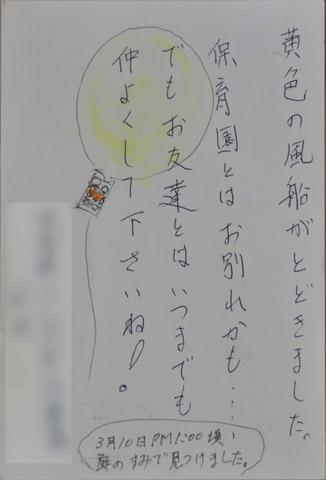 黄色の風船がとどきました。
保育園とはお別れかも・・・・
でもお友達とはいつまでも
仲よくして下さいね！。
3月10日PM1:00頃、
庭のすみで見つけました。